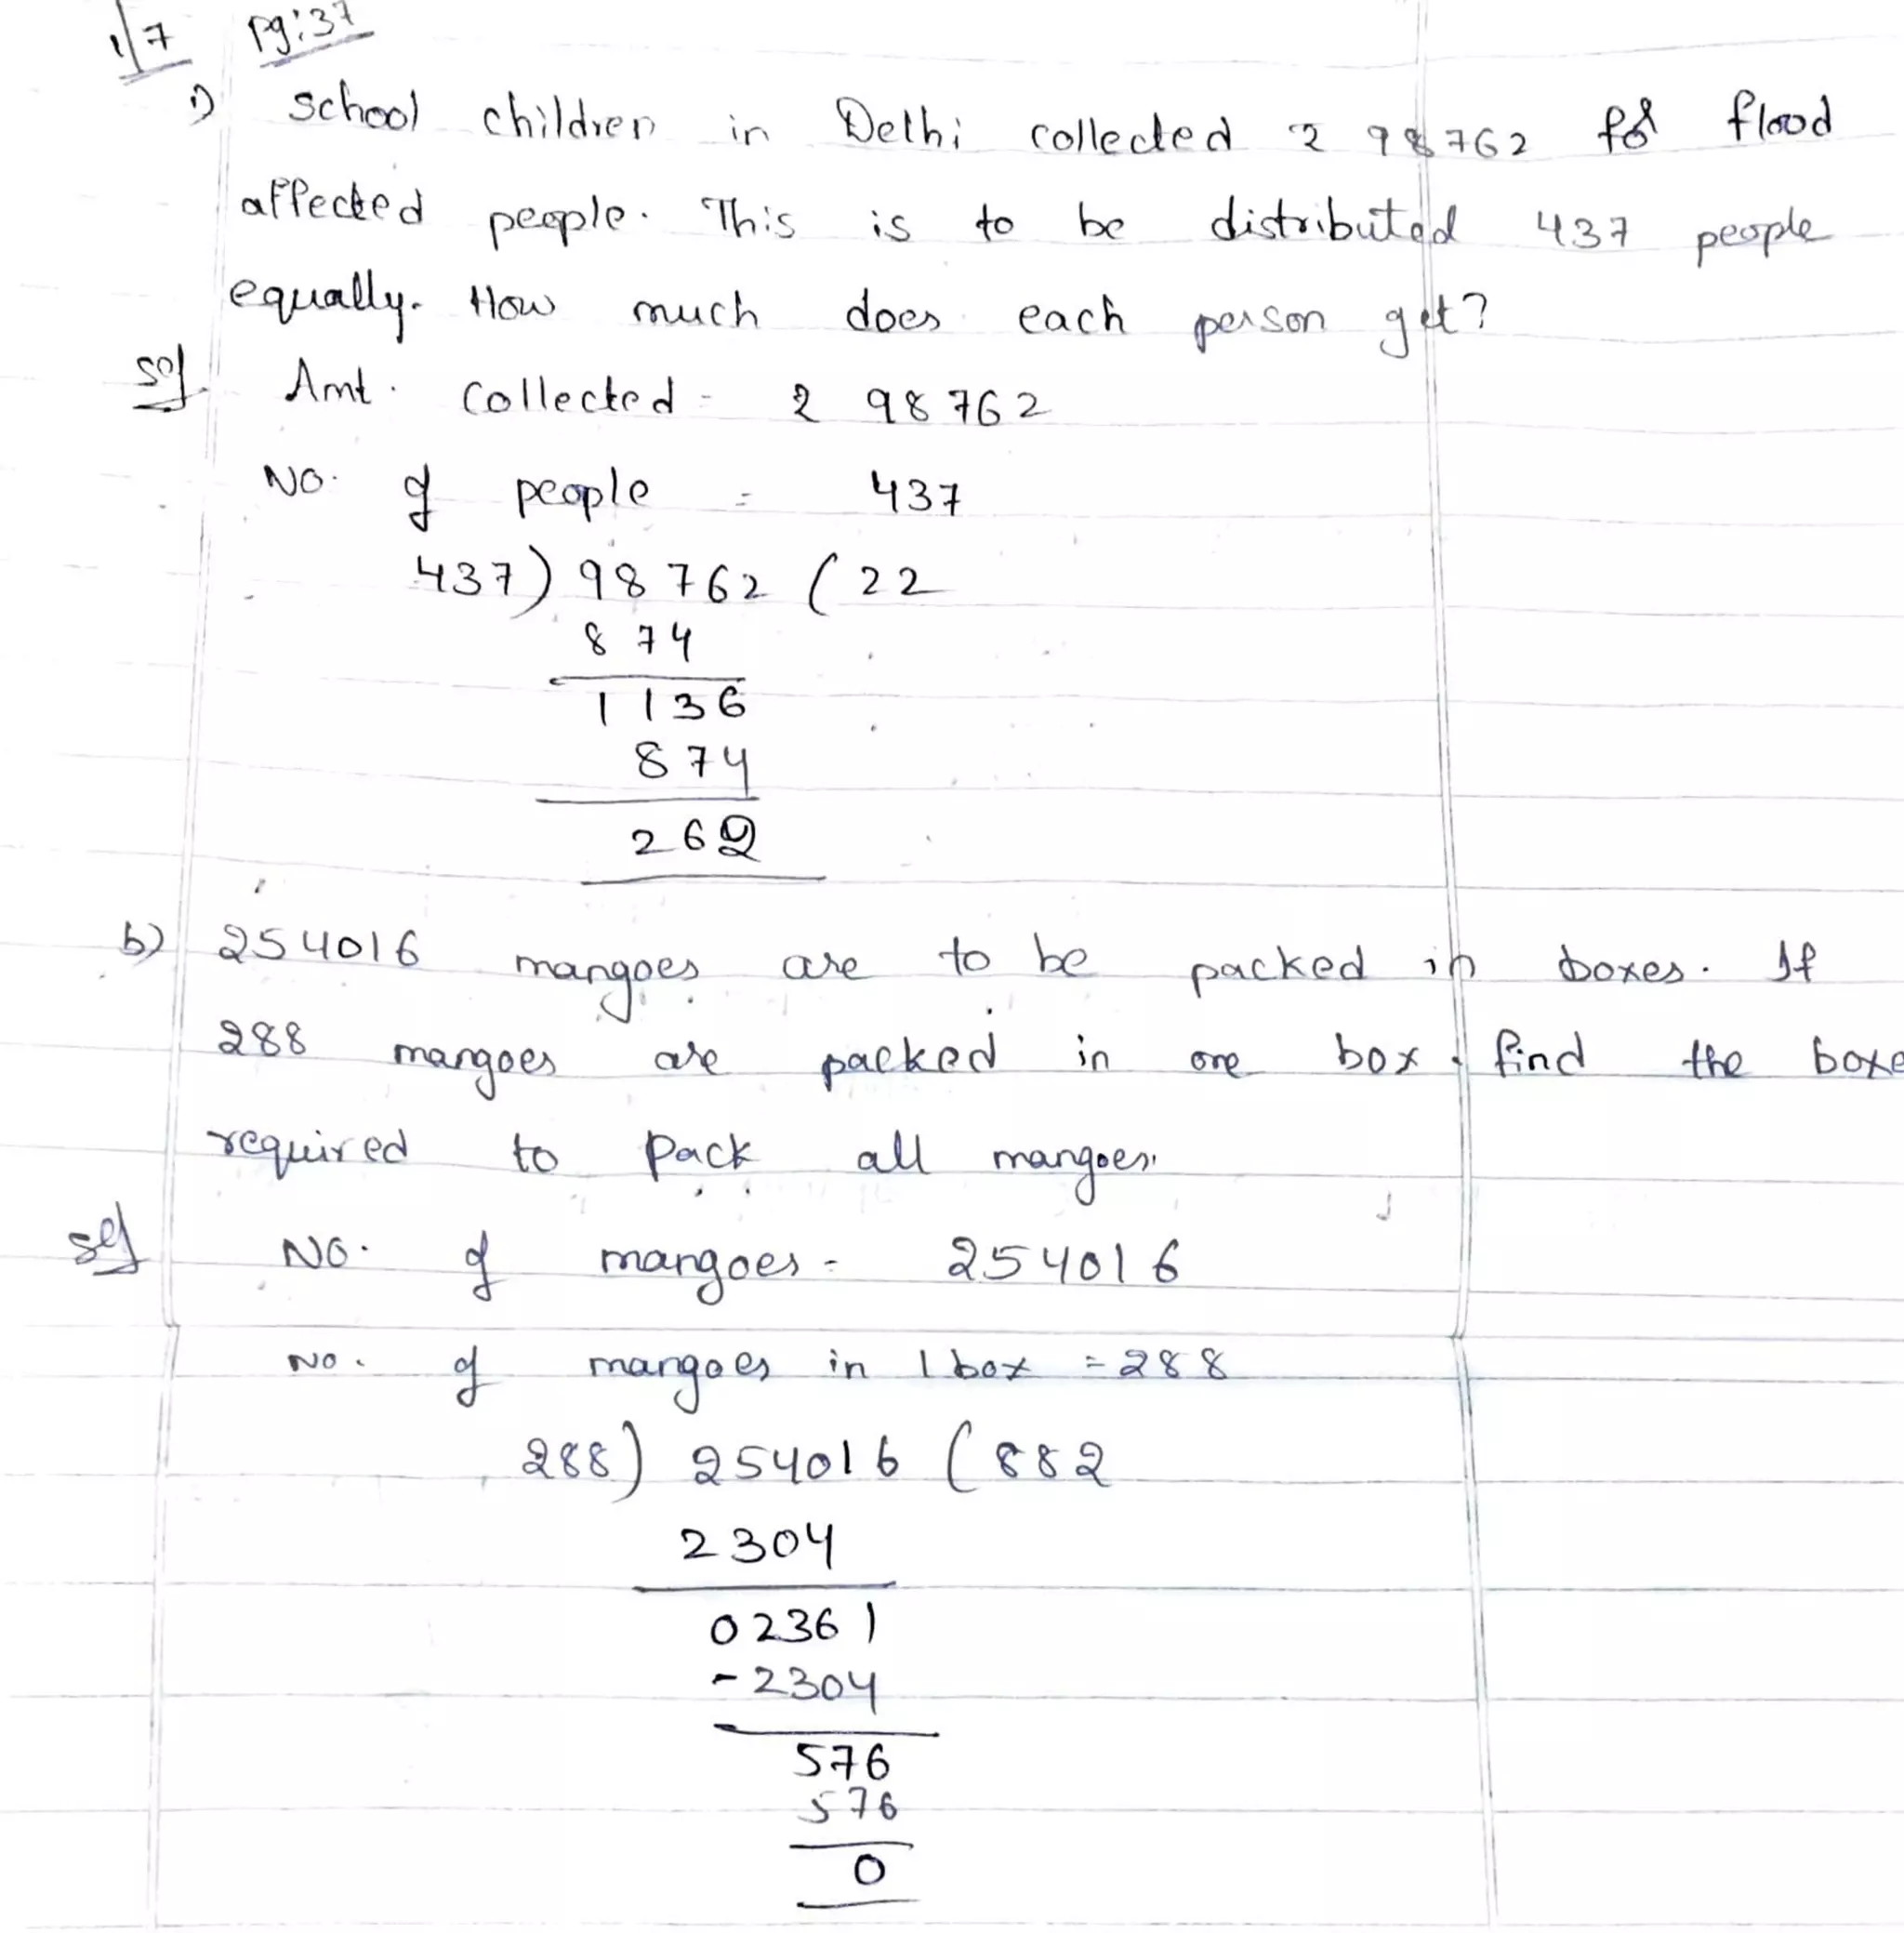 1/7 pg:37
1) School children in Delhi collected ₹ 98762 for flood
affected people. This is to be distributed 437 people
equally. How much does each person get?
Sol. Amt. collected - ₹ 98762
No. of people = 437
437) 98762 (22
874
1136
874
262
b) 254016 mangoes are to be packed in boxes. If
288 mangoes are packed in one box. find the boxe
required to pack all mangoes.
Sol No. of mangoes - 254016
No. of mangoes in 1 box = 288
288) 254016 (882
2304
02361
-2304
576
576
0